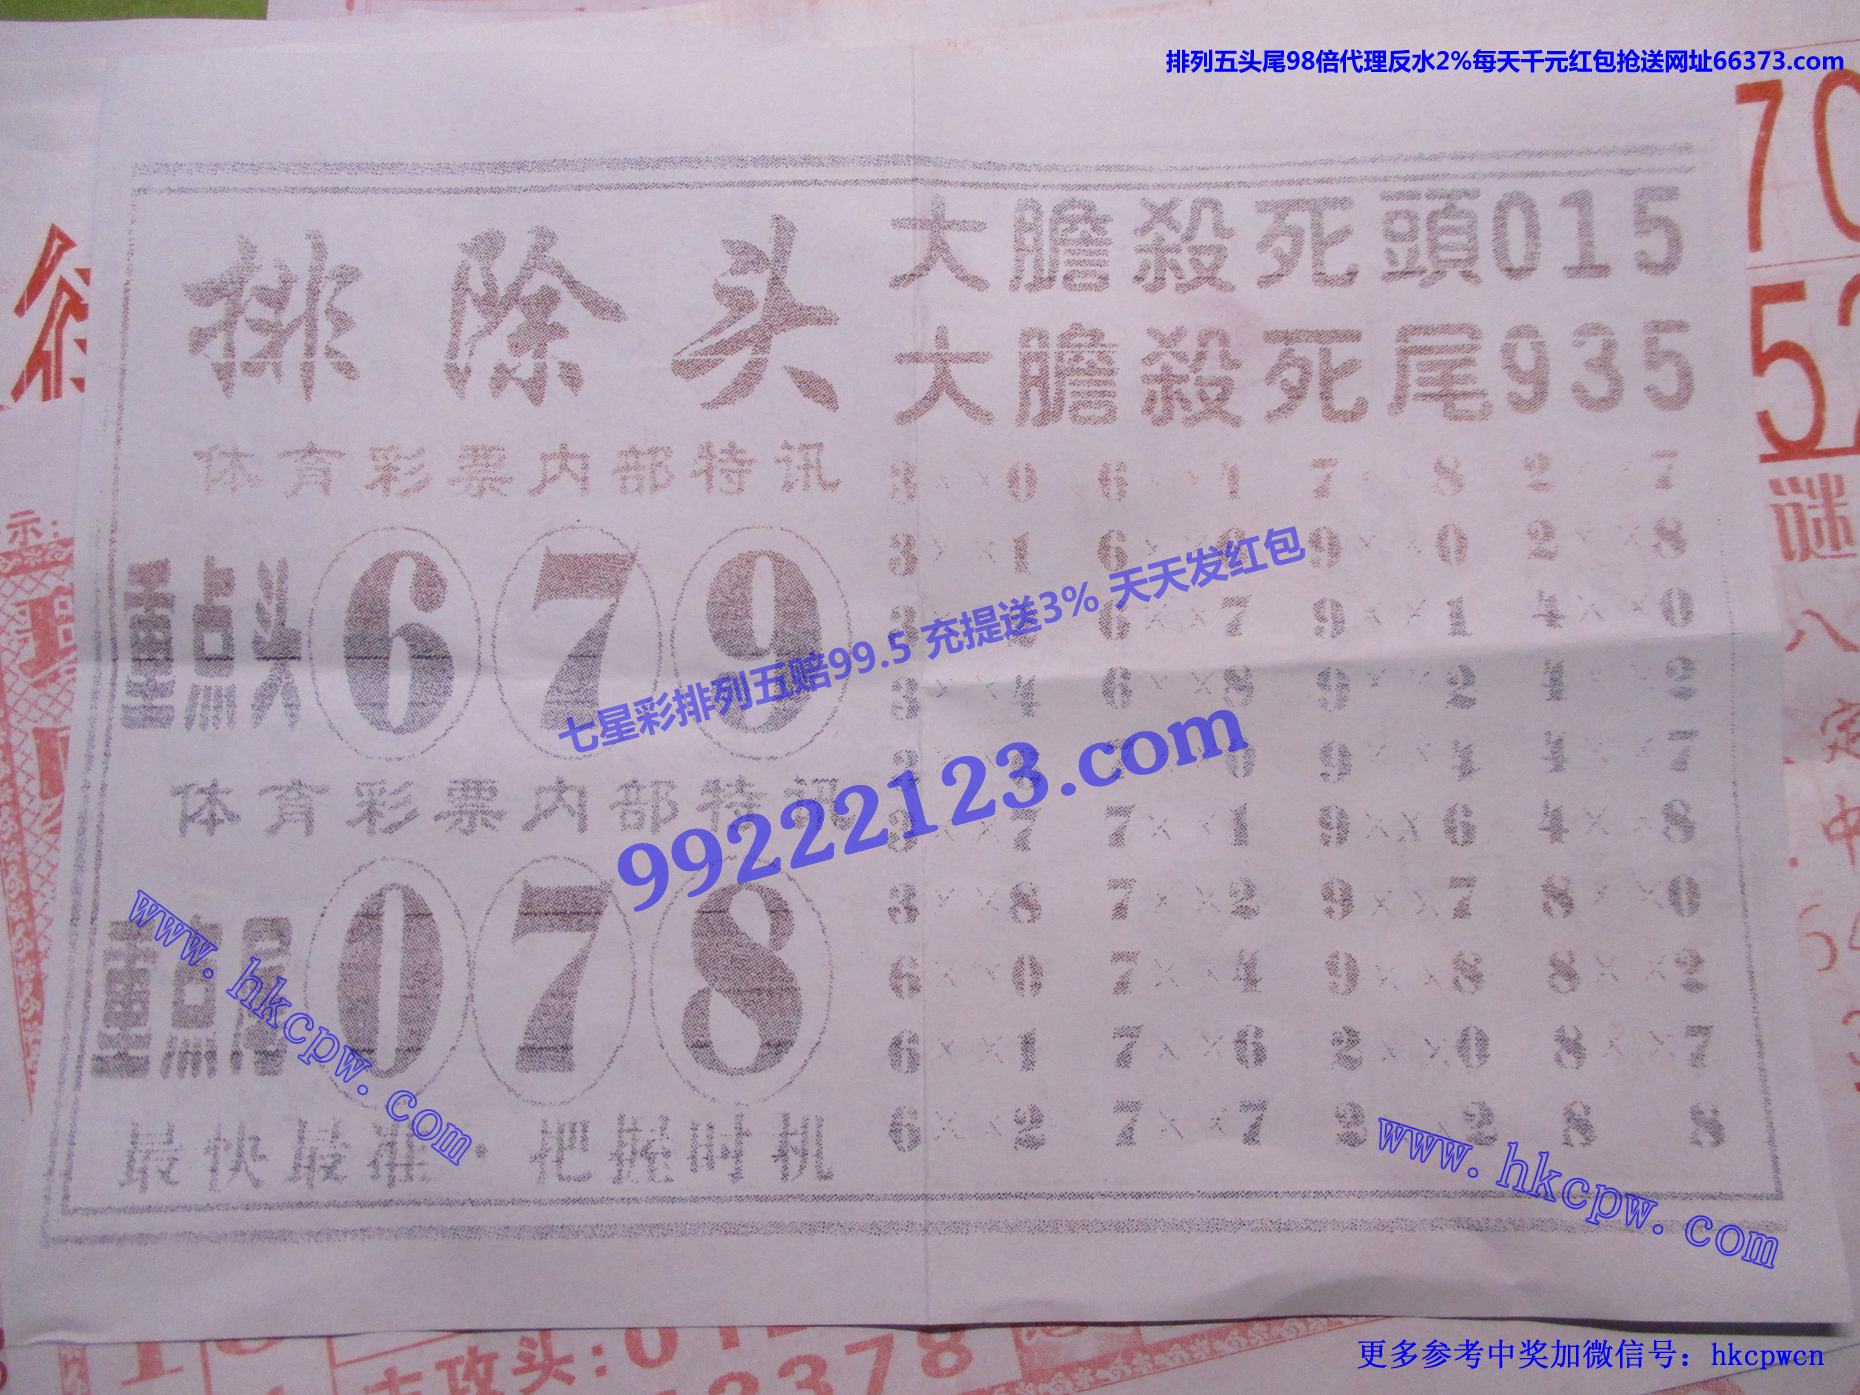 排列五头尾98倍代理反水2%每天千元红包抢送网址66373.com
排除头
体育彩票内部特讯
重点头679
体育彩票内部特讯
重点尾078
最快最准·把握时机
大膽殺死頭015
大膽殺死尾935
3××0 6××1 7××8 2××7
3××1 6×× 9××0 2××8
3×× 6××7 9××1 4××0
3××4 6××8 9××2 4××2
9××4 4××7
7 7××1 9××6 4××8
3××8 7××2 9××7 8××0
6××0 7××4 9××8 8××2
6××1 7××6 2××0 8××7
6××2 7××7 2××2 8 8
七星彩排列五赔99.5 充提送3% 天天发红包
99222123.com
www.hkcpw.com
www.hkcpw.com
70
52
谜
示:
攻头:01
378
更多参考中奖加微信号：hkcpwcn